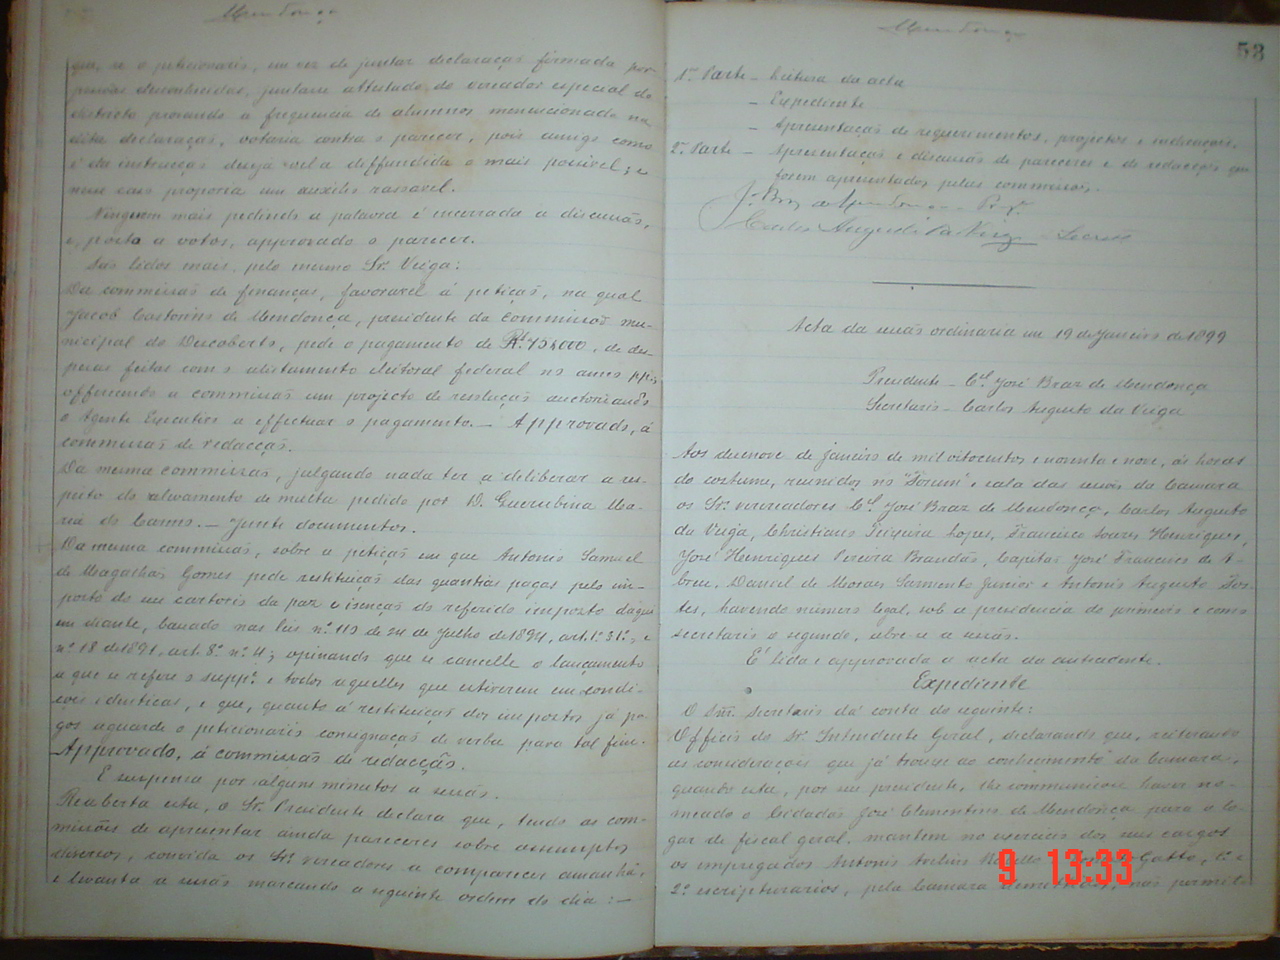 Mendonça
que, se o peticionario, em vez de juntar declaração firmada por
pessoas desconhecidas, juntasse attestado do vereador especial do
districto provando a frequencia de alumnos mencionada na
dita declaração, votaria contra o parecer, pois amigo como
é da instrucção deseja vel-a diffundida o mais possivel; e
nesse caso proporia um auxilio rasoavel.
Ninguem mais pedindo a palavra é encerrada a discussão,
e, posto a votos, approvado o parecer.
São lidos mais, pelo mesmo Sr. Veiga:
Da commissão de finanças, favoravel á petição, na qual
Jacob Castorino de Mendonça, presidente da commissão mu-
nicipal do Descoberto, pede o pagamento de Rs. 75$000, de des-
pesas feitas com o alistamento eleitoral federal no anno pp.,
offerecendo a commissão um projecto de resolução auctorisando
o Agente Executivo a effectuar o pagamento. — Approvado, á
commissão de redacção.
Da mesma commissão, julgando nada ter a deliberar a res-
peito do relevamento de multa pedido por D. Querubina Ma-
ria do Carmo. — Junte documentos.
Da mesma commissão, sobre a petição em que Antonio Samuel
de Magalhães Gomes pede restituição das quantias pagas pelo im-
posto do seu cartorio da paz e isenção do referido imposto daqui
em diante, baseado nas leis nº. 112 de 24 de Julho de 1894, art. 1º. e
nº. 18 de 1891, art. 8º. nº. 4; opinando que se cancelle o lançamento
a que se refere o suppe. e todos aquelles que estiverem em condi-
ções identicas, e que, quanto á restituição dos impostos já pa-
gos aguarde o peticionario consignação de verba para tal fim.
Approvado, á commissão de redacção.
E' suspensa por alguns minutos a sessão.
Reaberta esta, o Sr. Presidente declara que, tendo as com-
missões de apresentar ainda pareceres sobre assumptos
diversos, convida os Srs. vereadores a comparecer amanhã,
e levanta a sessão marcando a seguinte ordem do dia: —
Mendonça
53
1ª. Parte — Leitura da acta
— Expediente
— Apresentação de requerimentos, projectos e indicações.
2ª. Parte — Apresentação e discussão de pareceres e de redacções que
forem apresentados pelas commissões.
J. Braz de Mendonça — Presᵉ.
Carlos Augusto da Veiga — Secreto
Acta da sessão ordinaria em 19 de Janeiro de 1899
Presidente — Cel. José Braz de Mendonça
Secretario — Carlos Augusto da Veiga
Aos desenove de janeiro de mil oitocentos e noventa e nove, ás horas
do costume, reunidos no "Forum" e sala das sessões da Camara
os Srs. vereadores Cel. José Braz de Mendonça, Carlos Augusto
da Veiga, Christiano Teixeira Lopes, Francisco Soares Henriques,
José Henriques Pereira Brandão, Capitão José Francisco de A-
breu, Daniel de Moraes Sarmento Junior e Antonio Augusto Fon-
tes, havendo numero legal, sob a presidencia do primeiro e como
secretario o segundo, abre-se a sessão.
E' lida e approvada a acta da antecedente.
Expediente
O Snr. secretario dá conta do seguinte:
Officio do Sr. Intendente Geral, declarando que, reiterando
as considerações que já trouxe ao conhecimento da Camara,
quando esta, por seu presidente, lhe communicou haver no-
meado o Cidadão José Clementino de Mendonça para o lo-
gar de fiscal geral, mantem no exercicio dos seus cargos
os empregados Antonio Avelino Gatto, 1º. e
2º. escripturarios, pela Camara demittidos, não permit-
9 13:33